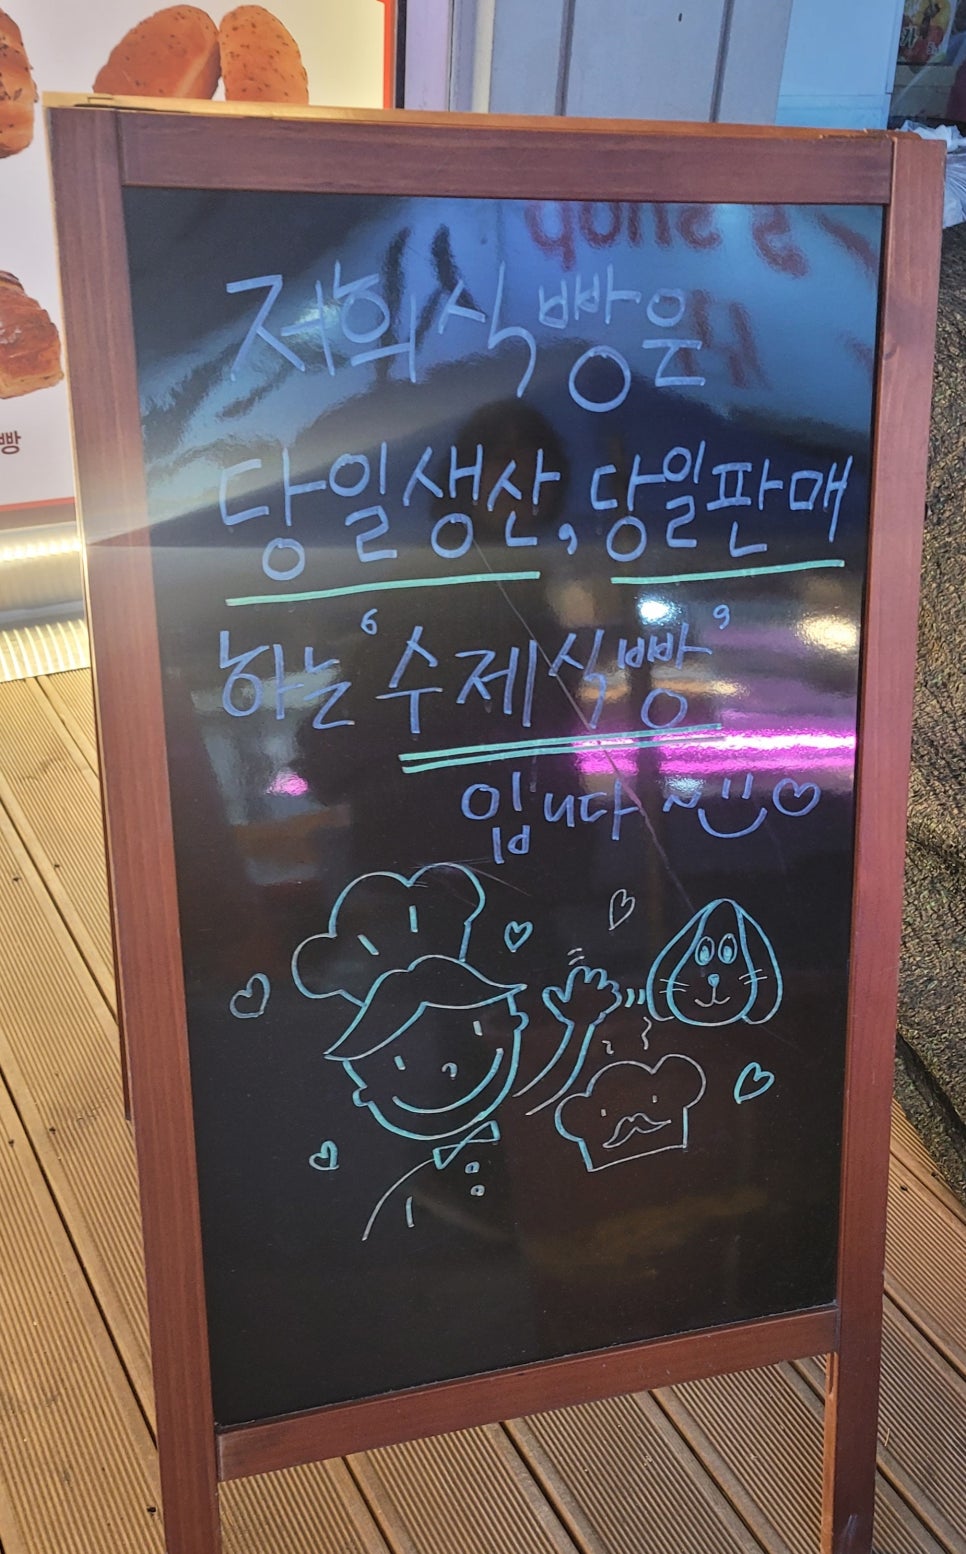 저희 식빵은
당일생산, 당일판매
하는 '수제식빵'
입니다~
빵